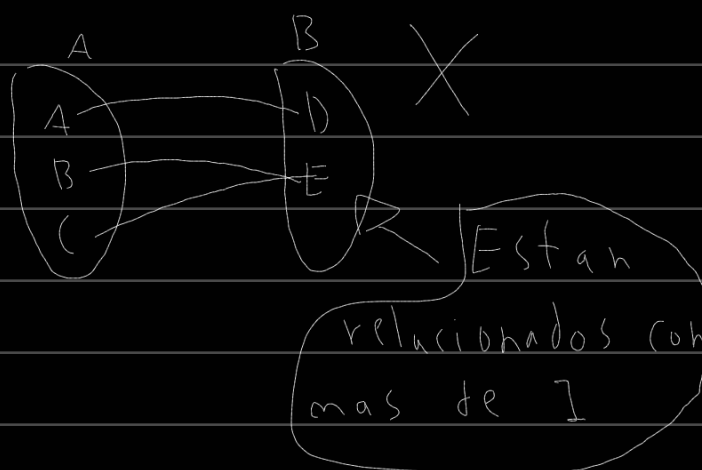 A B
A D
B E
C
Estan
relacionados con
mas de 1